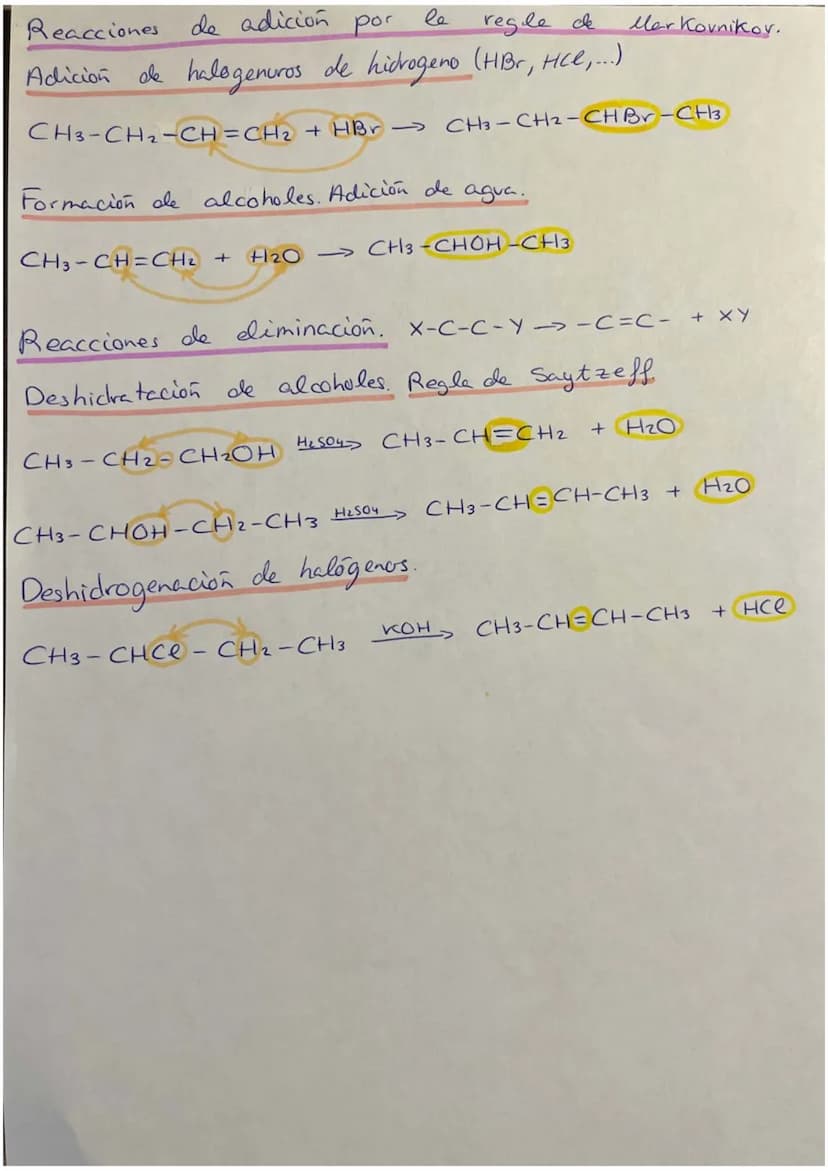 Reacciones de adición por la regla de Markovnikov.
Adición de halogenuros de hidrogeno (HBr, HCl,...)
CH3-CH2-CH=CH2 + HBr → CH3-CH2-CHBr-CH3
Formación de alcoholes. Adición de agua.
CH3-CH=CH2 + H2O → CH3-CHOH-CH3
Reacciones de eliminación. X-C-C-Y → -C=C- + XY
Deshidratación de alcoholes. Regla de Saytzeff
CH3-CH2-CH2OH H2SO4→ CH3-CH=CH2 + H2O
CH3-CHOH-CH2-CH3 H2SO4→ CH3-CH=CH-CH3 + H2O
Deshidrogenación de halógenos.
CH3-CHCl-CH2-CH3 KOH→ CH3-CH=CH-CH3 + HCl